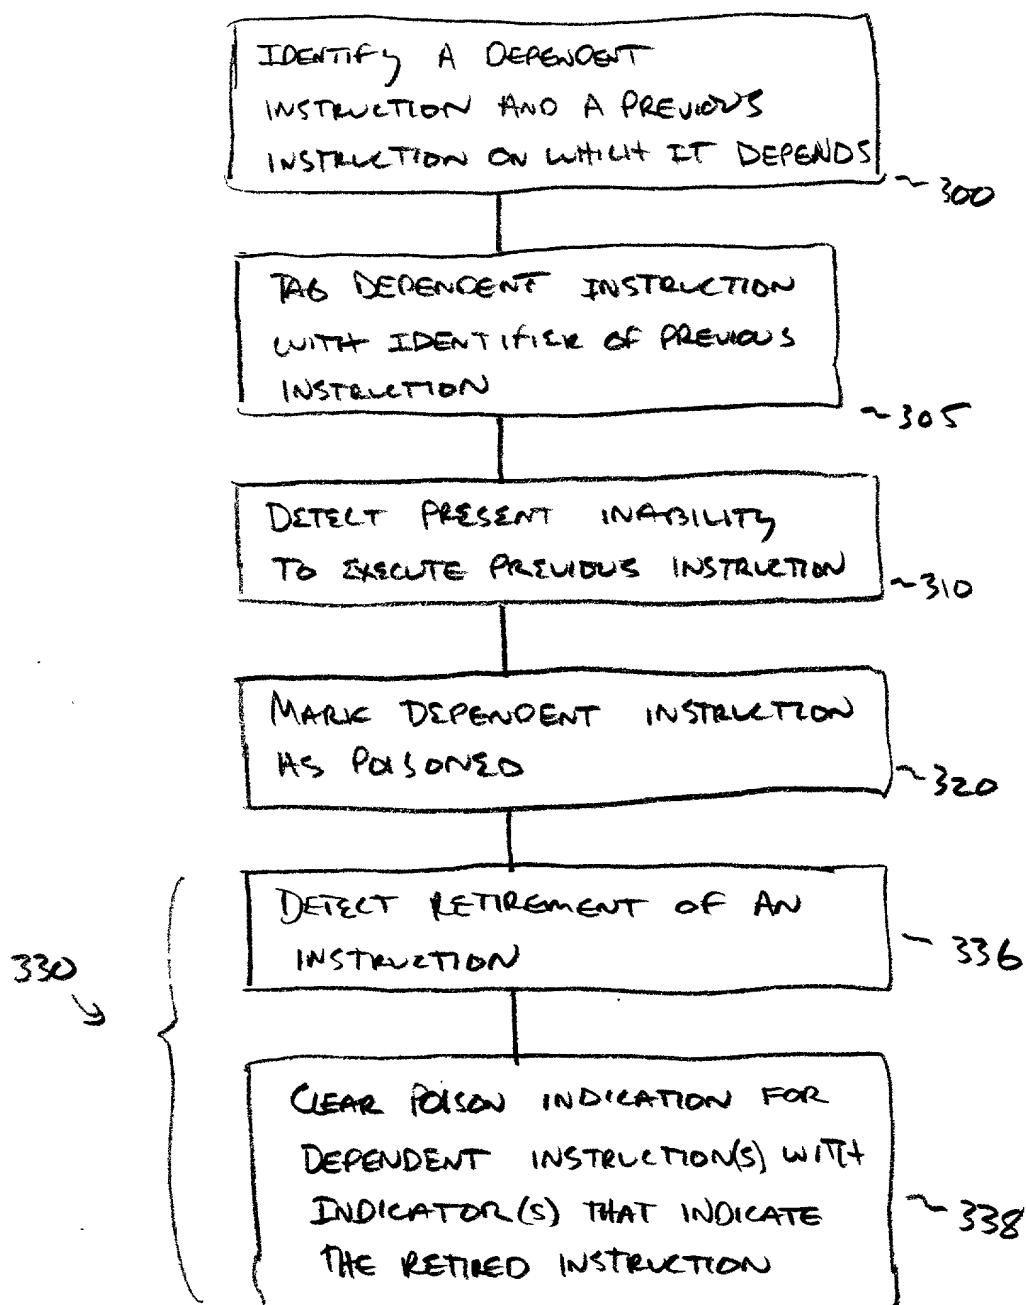 IDENTIFY A DEPENDENT
INSTRUCTION AND A PREVIOUS
INSTRUCTION ON WHICH IT DEPENDS
~300
TAG DEPENDENT INSTRUCTION
WITH IDENTIFIER OF PREVIOUS
INSTRUCTION
~305
DETECT PRESENT INABILITY
TO EXECUTE PREVIOUS INSTRUCTION
~310
MARK DEPENDENT INSTRUCTION
AS POISONED
~320
DETECT RETIREMENT OF AN
INSTRUCTION
~336
330
CLEAR POISON INDICATION FOR
DEPENDENT INSTRUCTION(S) WITH
INDICATOR(S) THAT INDICATE
THE RETIRED INSTRUCTION
~338